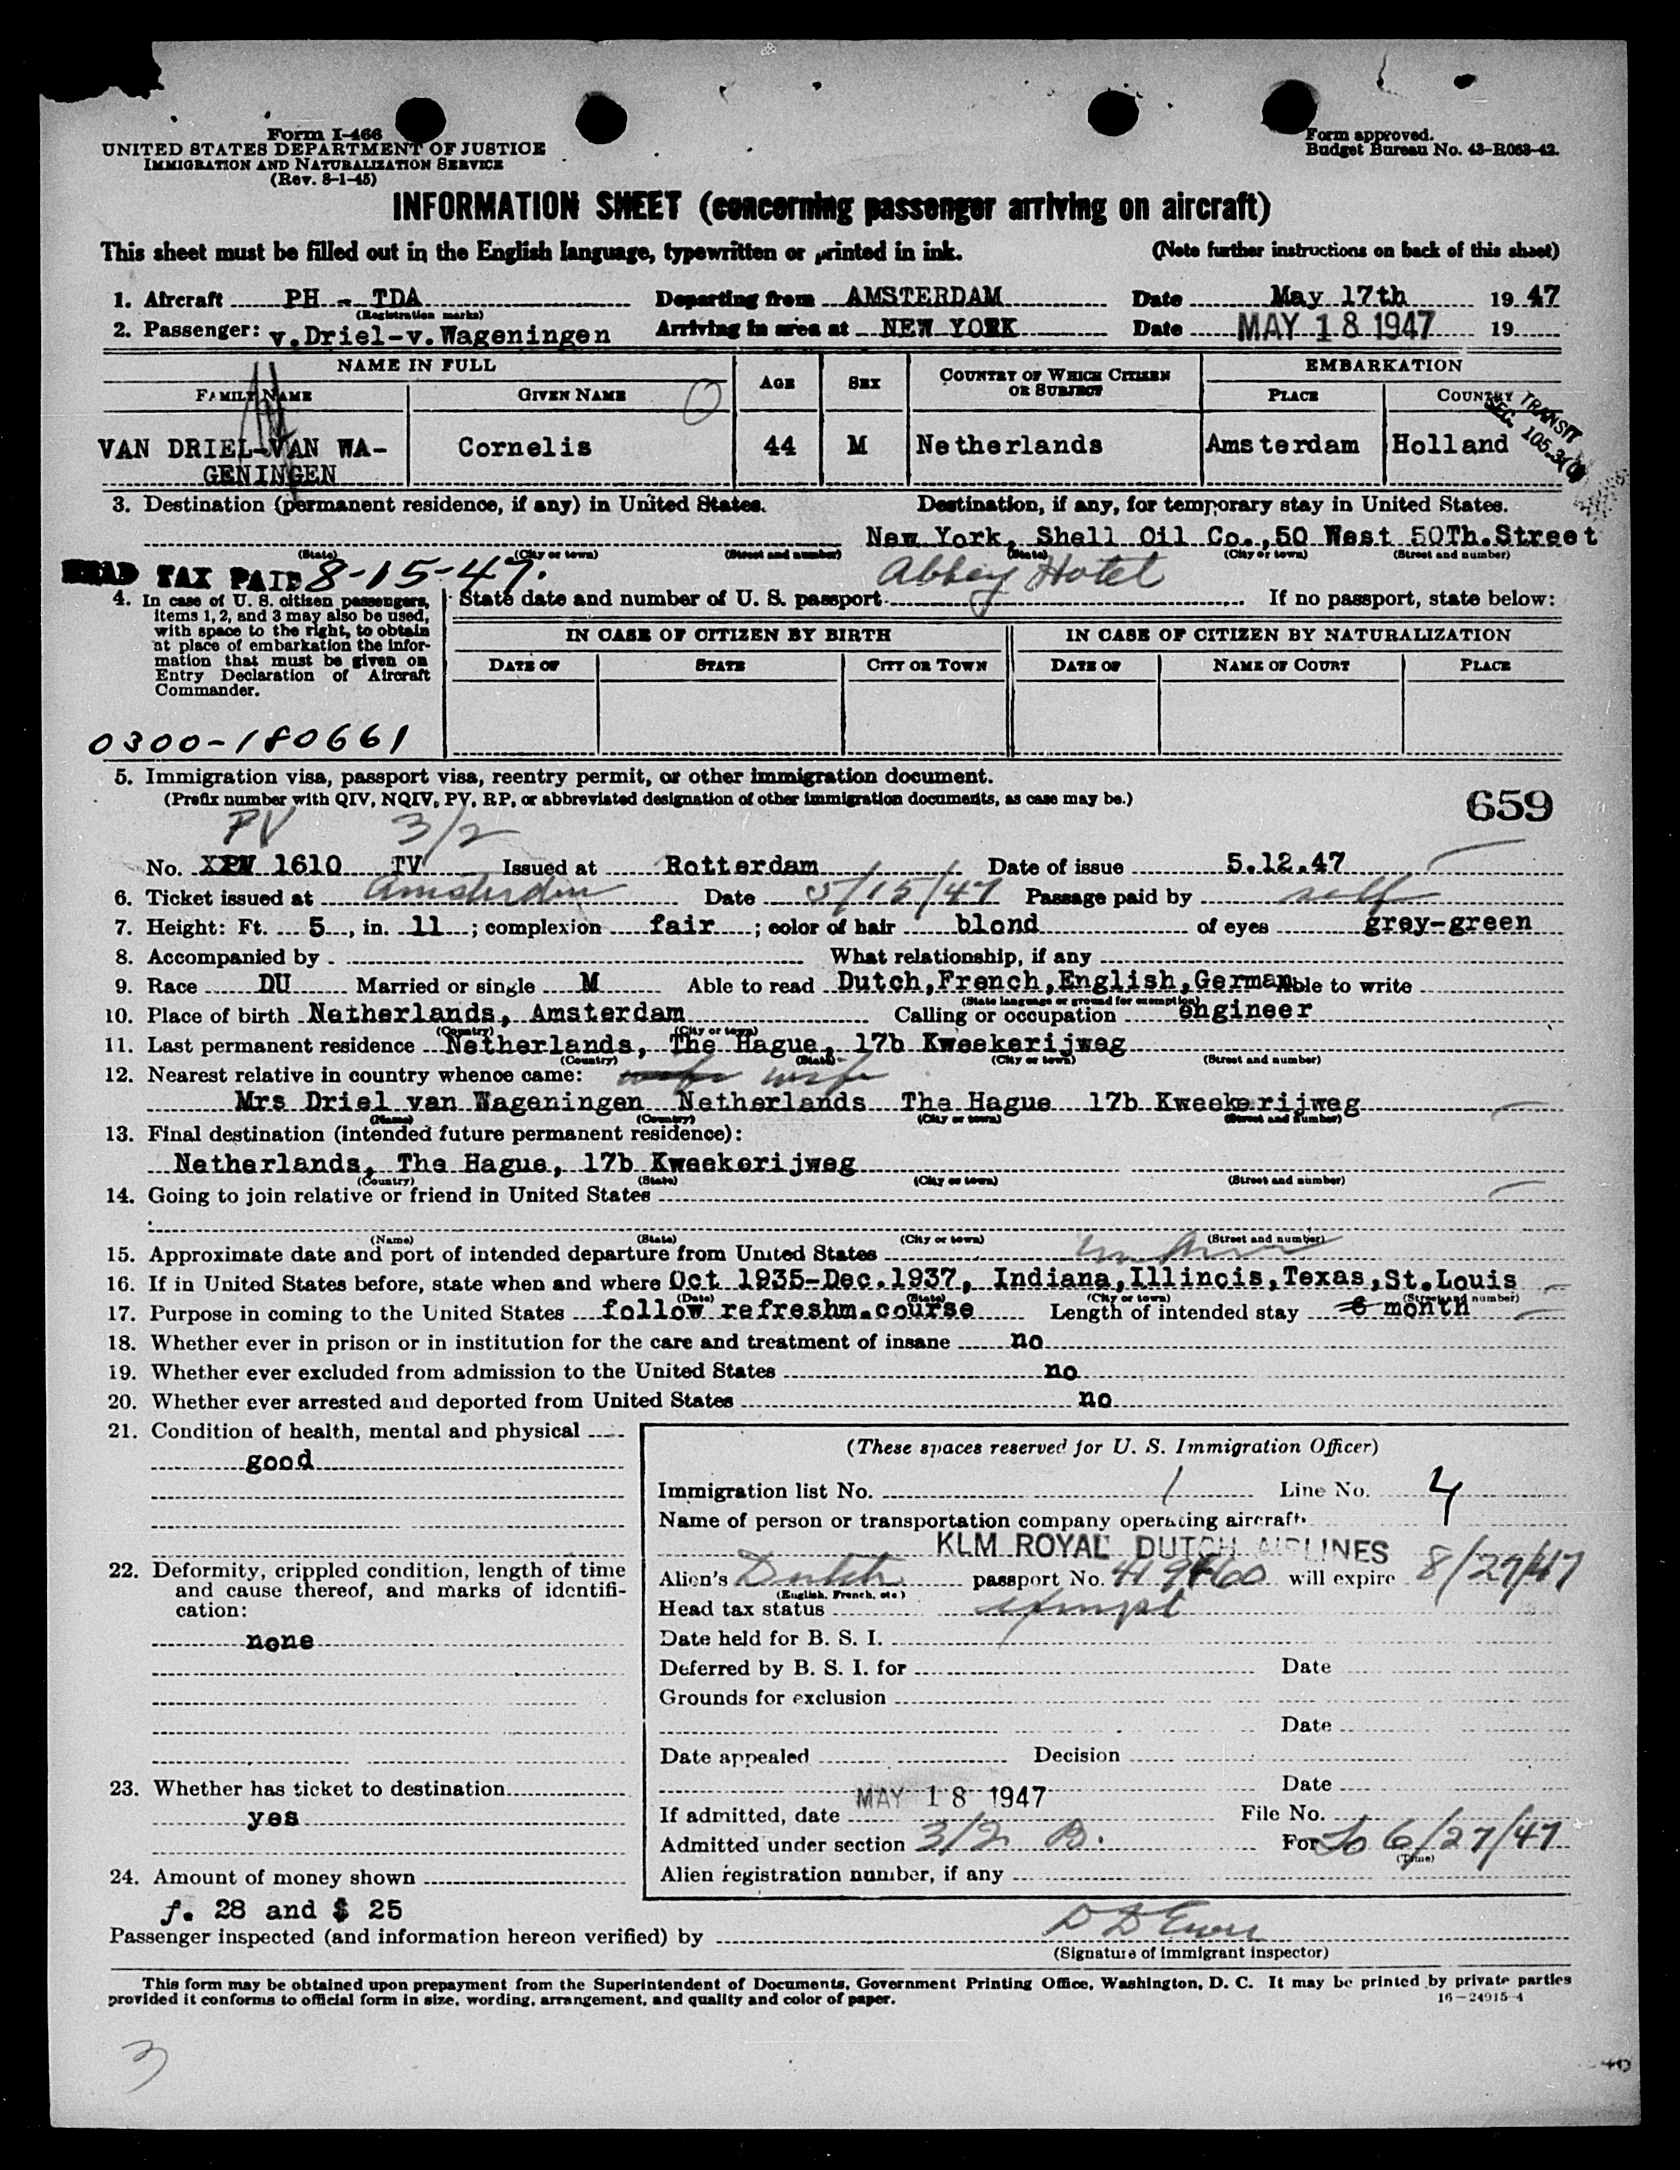 Form I-466
UNITED STATES DEPARTMENT OF JUSTICE
IMMIGRATION AND NATURALIZATION SERVICE
(Rev. 8-1-45)
Form approved.
Budget Bureau No. 43-R063-42.
INFORMATION SHEET (concerning passenger arriving on aircraft)
This sheet must be filled out in the English language, typewritten or printed in ink. (Note further instructions on back of this sheet)
1. Aircraft PH - TDA Departing from AMSTERDAM Date May 17th 19 47
(Registration marks)
2. Passenger: v.Driel-v.Wageningen Arriving in area at NEW YORK Date MAY 18 1947 19
NAME IN FULL AGE SEX COUNTRY OF WHICH CITIZEN OR SUBJECT EMBARKATION
FAMILY NAME GIVEN NAME PLACE COUNTRY
TRANSIT
SEC. 105.3(
VAN DRIEL-VAN WA- Cornelis 44 M Netherlands Amsterdam Holland
GENINGEN
3. Destination (permanent residence, if any) in United States. Destination, if any, for temporary stay in United States.
New York, Shell Oil Co.,50 West 50Th.Street
(State) (City or town) (Street and number) (State) (City or town) (Street and number)
HEAD TAX PAID 8-15-47. Abbey Hotel
4. In case of U. S. citizen passengers, items 1, 2, and 3 may also be used, with space to the right, to obtain at place of embarkation the information that must be given on Entry Declaration of Aircraft Commander.
State date and number of U. S. passport If no passport, state below:
IN CASE OF CITIZEN BY BIRTH IN CASE OF CITIZEN BY NATURALIZATION
DATE OF STATE CITY OR TOWN DATE OF NAME OF COURT PLACE
0300-180661
5. Immigration visa, passport visa, reentry permit, or other immigration document.
(Prefix number with QIV, NQIV, PV, RP, or abbreviated designation of other immigration documents, as case may be.)
659
PV 3/2
No. XPV 1610 TV Issued at Rotterdam Date of issue 5.12.47
6. Ticket issued at Amsterdam Date 5/15/47 Passage paid by self
7. Height: Ft. 5, in. 11; complexion fair; color of hair blond of eyes grey-green
8. Accompanied by What relationship, if any
9. Race DU Married or single M Able to read Dutch,French,English,German Able to write
(State language or ground for exemption)
10. Place of birth Netherlands, Amsterdam Calling or occupation engineer
(Country) (City or town)
11. Last permanent residence Netherlands, The Hague, 17b Kweekerijweg
(Country) (State) (City or town) (Street and number)
12. Nearest relative in country whence came: wife
Mrs Driel van Wageningen Netherlands The Hague 17b Kweekerijweg
(Name) (Country) (City or town) (Street and number)
13. Final destination (intended future permanent residence):
Netherlands, The Hague, 17b Kweekerijweg
(Country) (State) (City or town) (Street and number)
14. Going to join relative or friend in United States
(Name) (State) (City or town) (Street and number)
15. Approximate date and port of intended departure from United States
16. If in United States before, state when and where Oct 1935-Dec.1937, Indiana,Illinois,Texas,St.Louis
(Date) (State) (City or town) (Street and number)
17. Purpose in coming to the United States follow refreshm.course Length of intended stay 6 month
18. Whether ever in prison or in institution for the care and treatment of insane no
19. Whether ever excluded from admission to the United States no
20. Whether ever arrested and deported from United States no
21. Condition of health, mental and physical
good
(These spaces reserved for U. S. Immigration Officer)
Immigration list No. 1 Line No. 4
Name of person or transportation company operating aircraft
KLM ROYAL DUTCH AIRLINES
22. Deformity, crippled condition, length of time and cause thereof, and marks of identification:
none
Alien's Dutch passport No. will expire 8/27/47
(English, French, etc.)
Head tax status exempt
Date held for B. S. I.
Deferred by B. S. I. for Date
Grounds for exclusion
Date
Date appealed Decision
23. Whether has ticket to destination
yes
Date
MAY 18 1947
If admitted, date File No.
Admitted under section 3/2 B. For to 6/27/47
(Time)
24. Amount of money shown
Alien registration number, if any
f. 28 and $ 25
Passenger inspected (and information hereon verified) by
(Signature of immigrant inspector)
This form may be obtained upon prepayment from the Superintendent of Documents, Government Printing Office, Washington, D. C. It may be printed by private parties
provided it conforms to official form in size, wording, arrangement, and quality and color of paper.
16-24915-4
3